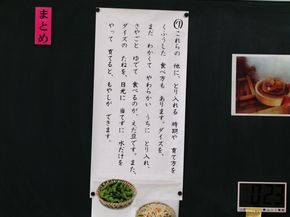 まとめ
⑦これらの 他に、とり入れる 時期や 育て方を
くふうした 食べ方も あります。ダイズを、
まだ わかくて やわらかい うちに とり入れ、
さやごと ゆでて 食べるのが、えだ豆です。また、
ダイズの たねを、日光に 当てずに 水だけを
やって 育てると、もやしが できます。